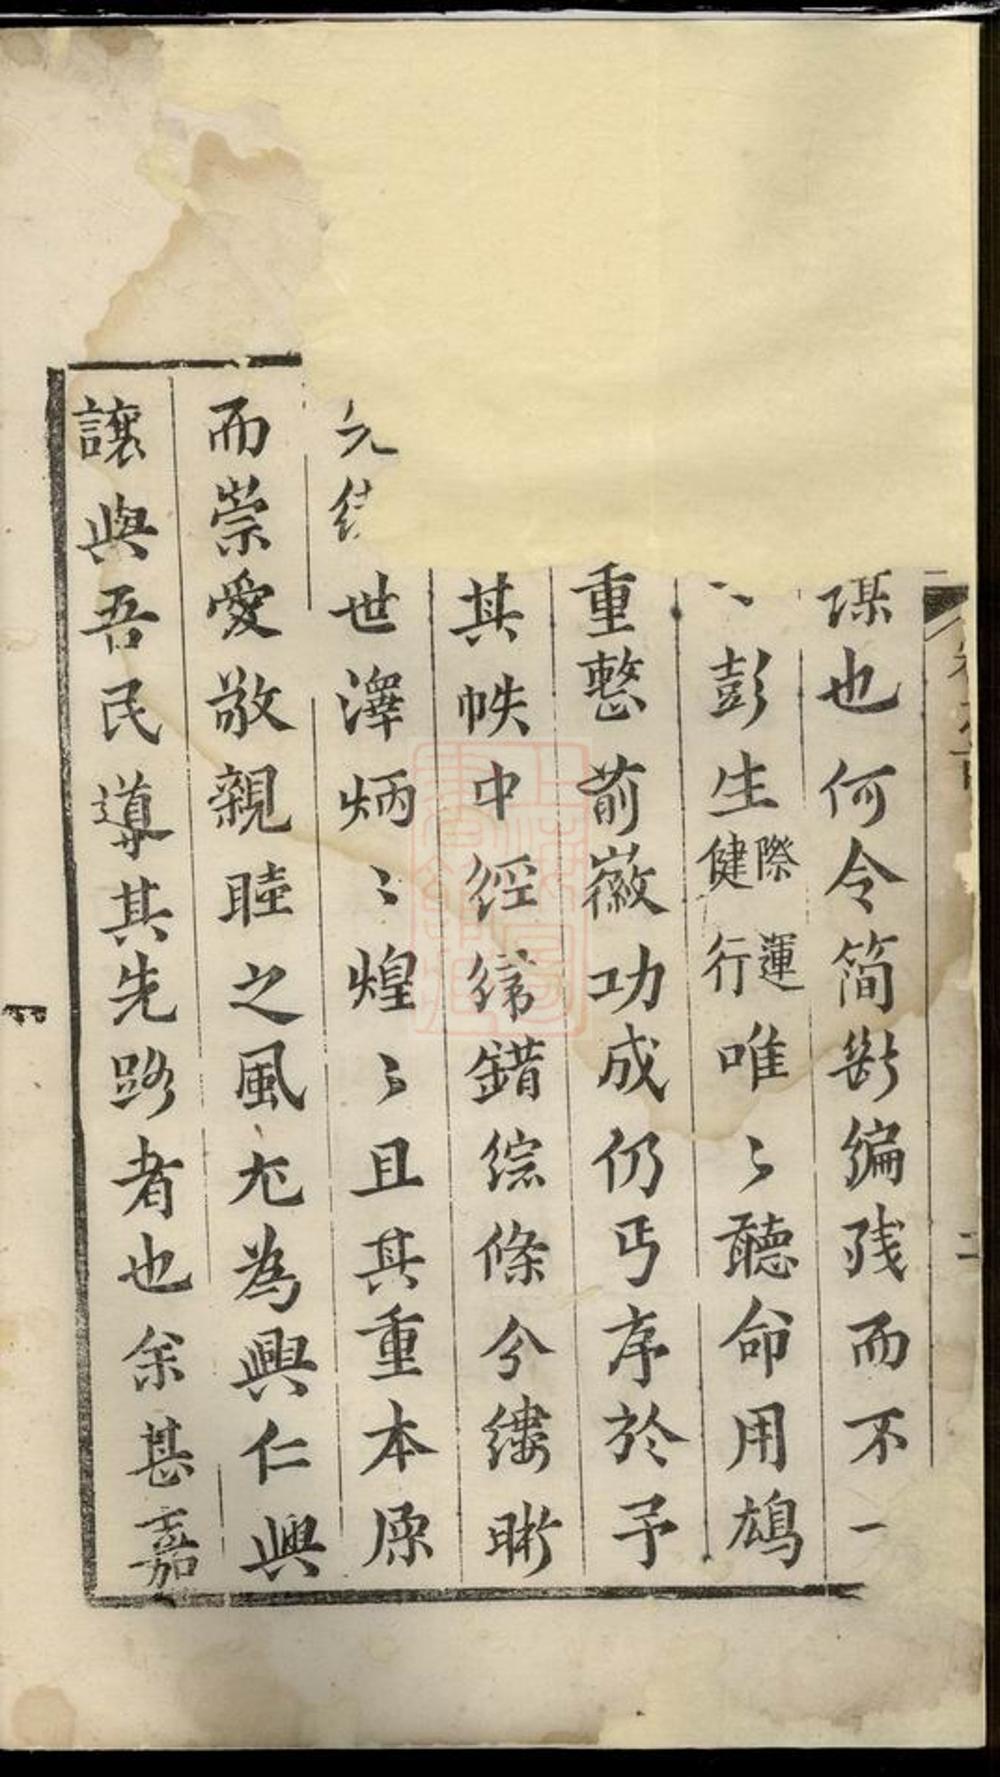 謀也何令简断编残而不一
彭生際運健行唯〻聽命用鳩
重整前徽功成仍丐序於予
其帙中經緯錯綜條分縷晰
世澤炳〻煌〻且其重本原
而崇愛敬親睦之風尤為興仁興
讓與吾民導其先路者也余甚嘉
二